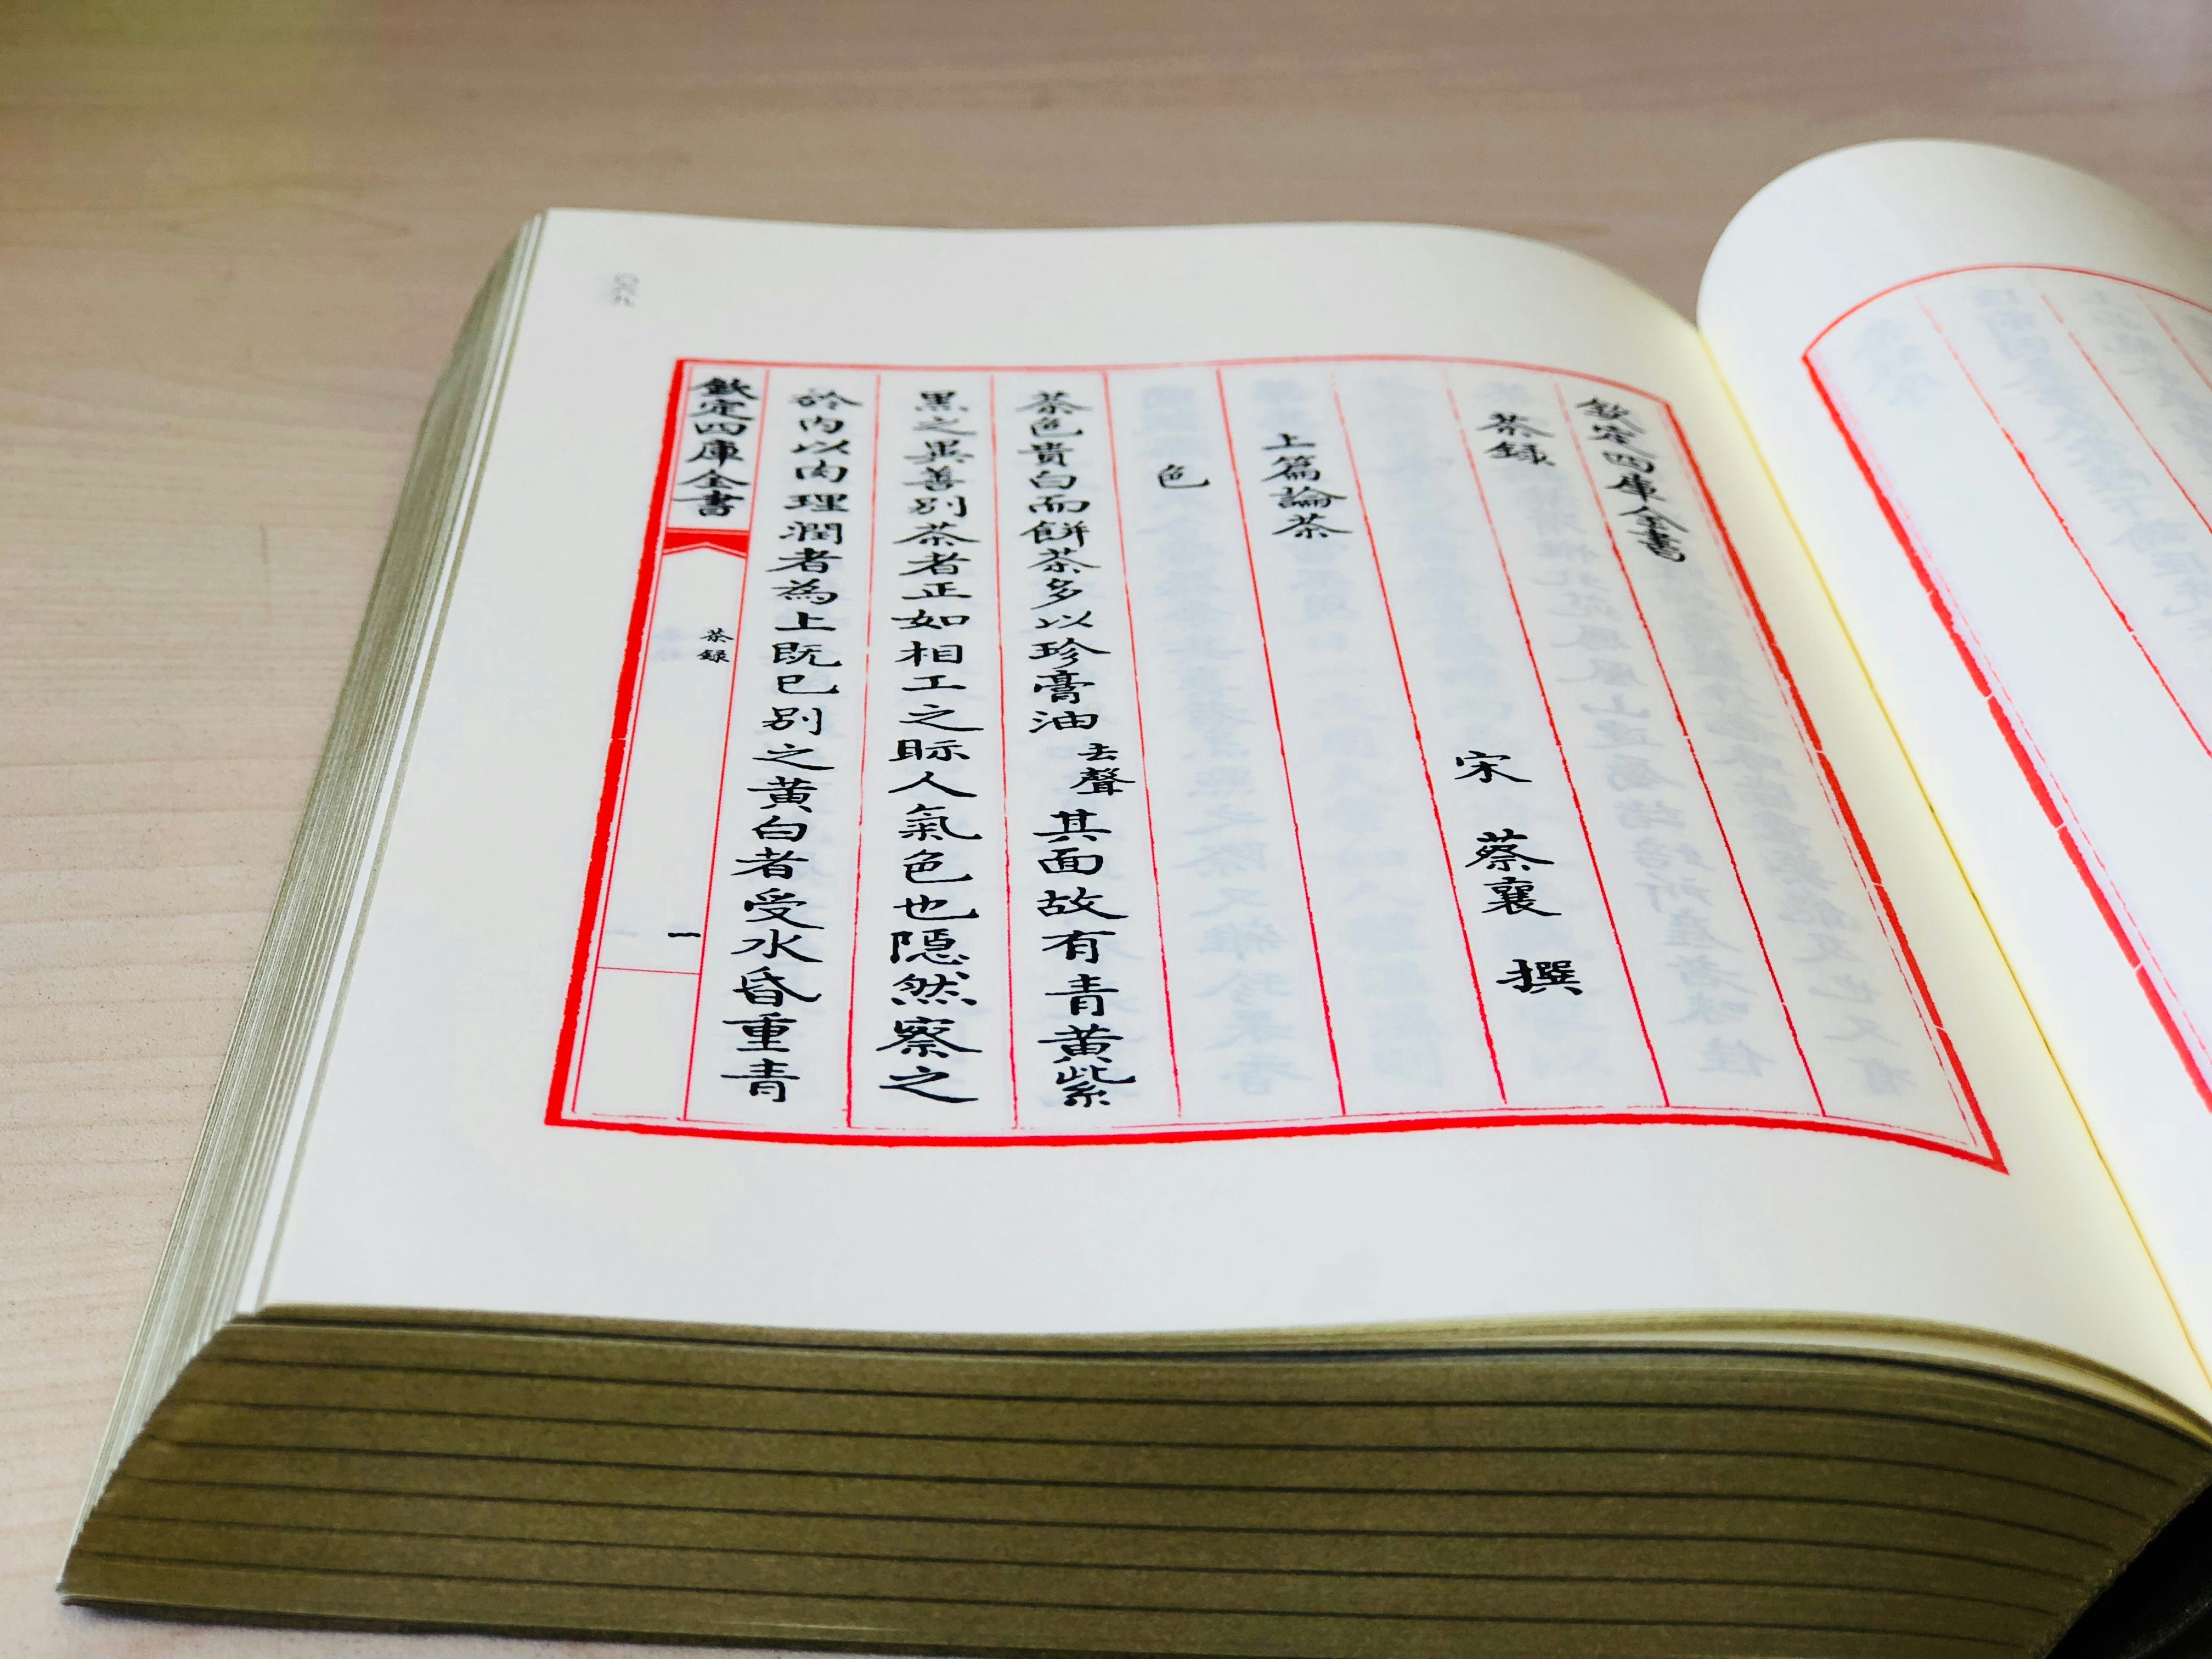 欽定四庫全書
茶録
宋 蔡襄 撰
上篇論茶
色
茶色貴白而餅茶多以珍膏油去聲其面故有青黃紫
黑之異善別茶者正如相工之眎人氣色也隱然察之
於內以肉理潤者為上既已別之黃白者受水昏重青
欽定四庫全書
茶録
一